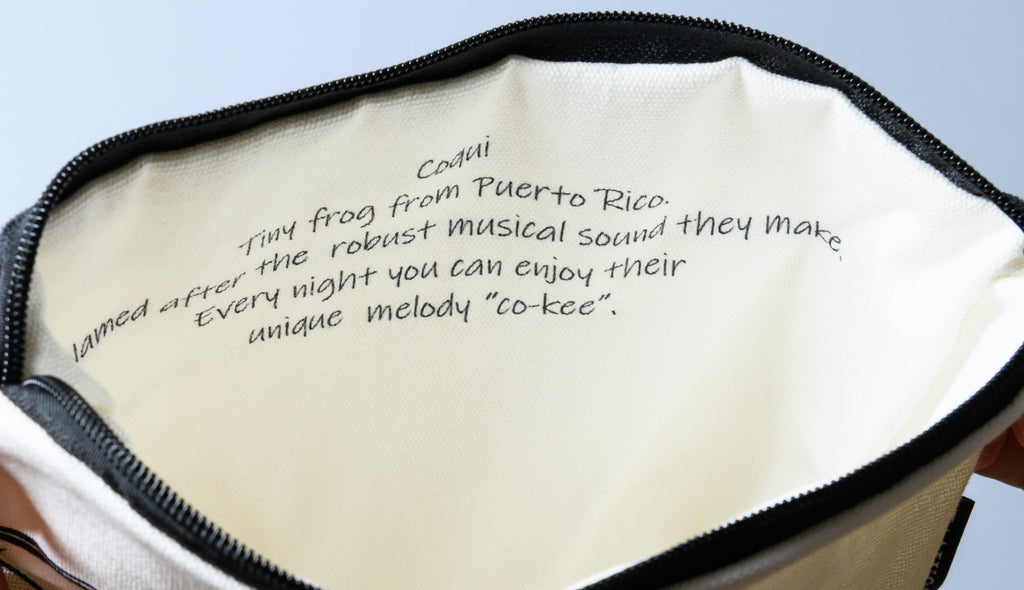 Coqui
Tiny frog from Puerto Rico.
lamed after the robust musical sound they make.
Every night you can enjoy their
unique melody "co-kee".